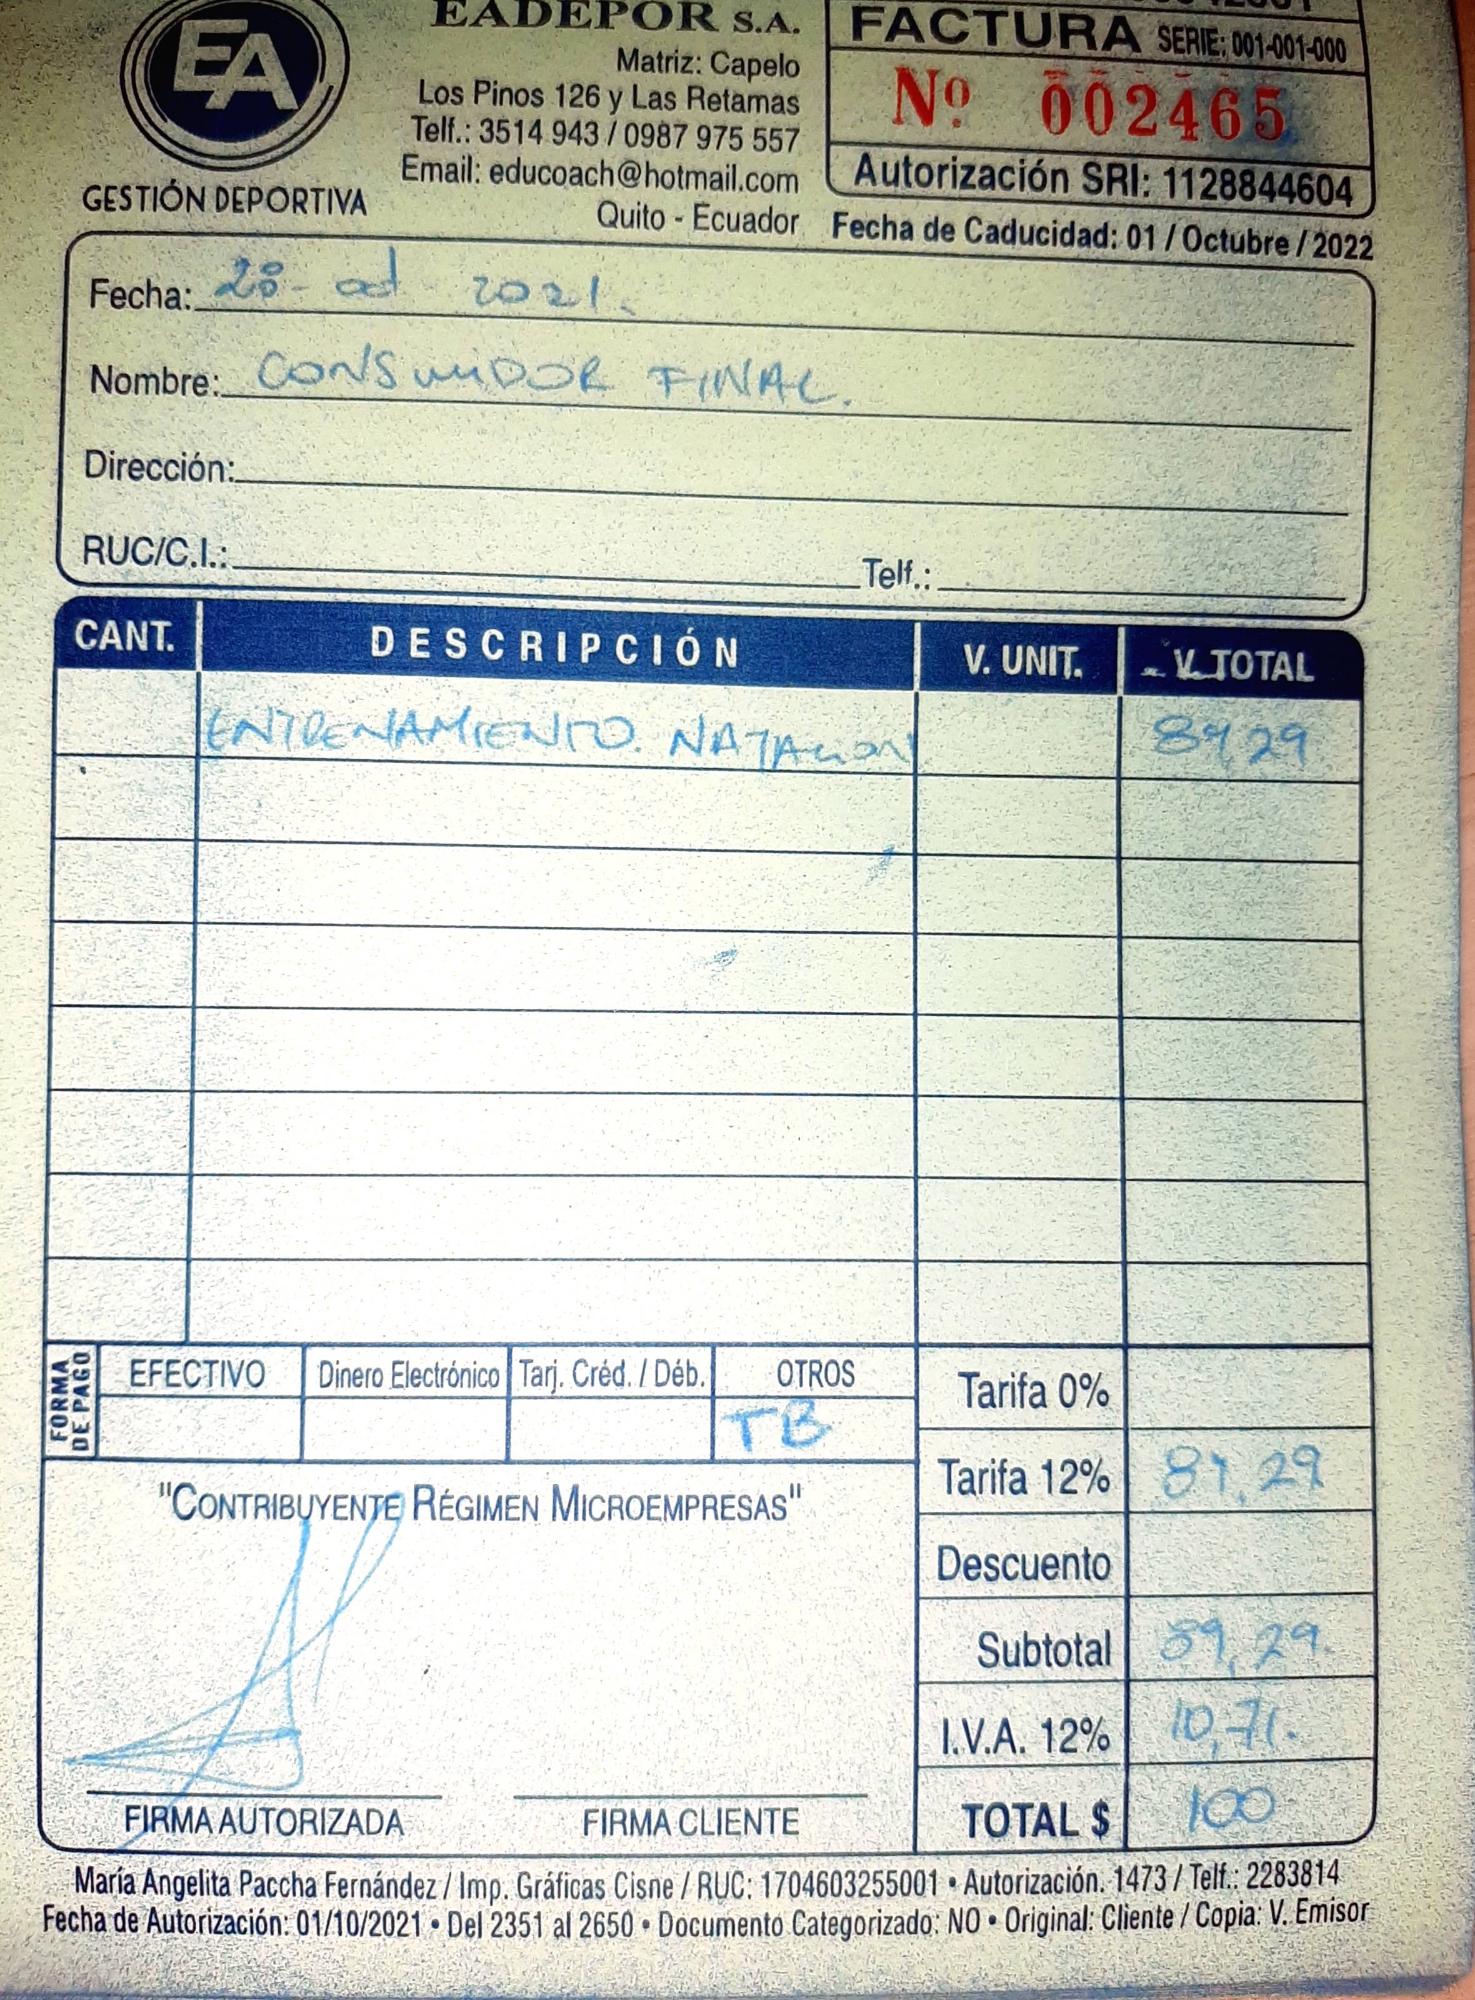 EA
GESTIÓN DEPORTIVA
EADEPOR S.A.
Matriz: Capelo
Los Pinos 126 y Las Retamas
Telf.: 3514 943 / 0987 975 557
Email: educoach@hotmail.com
Quito - Ecuador
FACTURA SERIE: 001-001-000
Nº 002465
Autorización SRI: 1128844604
Fecha de Caducidad: 01 / Octubre / 2022
Fecha: 28 - oct 2021.
Nombre: CONSUMIDOR FINAL.
Dirección:
RUC/C.I.: Telf.:
CANT. DESCRIPCIÓN V. UNIT. V. TOTAL
ENTRENAMIENTO NATACION 89,29
FORMA DE PAGO
EFECTIVO Dinero Electrónico Tarj. Créd. / Déb. OTROS
TB
Tarifa 0%
Tarifa 12% 89,29
Descuento
Subtotal 89,29
I.V.A. 12% 10,71.
TOTAL $ 100
"CONTRIBUYENTE RÉGIMEN MICROEMPRESAS"
FIRMA AUTORIZADA FIRMA CLIENTE
María Angelita Paccha Fernández / Imp. Gráficas Cisne / RUC: 1704603255001 • Autorización. 1473 / Telf.: 2283814
Fecha de Autorización: 01/10/2021 • Del 2351 al 2650 • Documento Categorizado: NO • Original: Cliente / Copia: V. Emisor